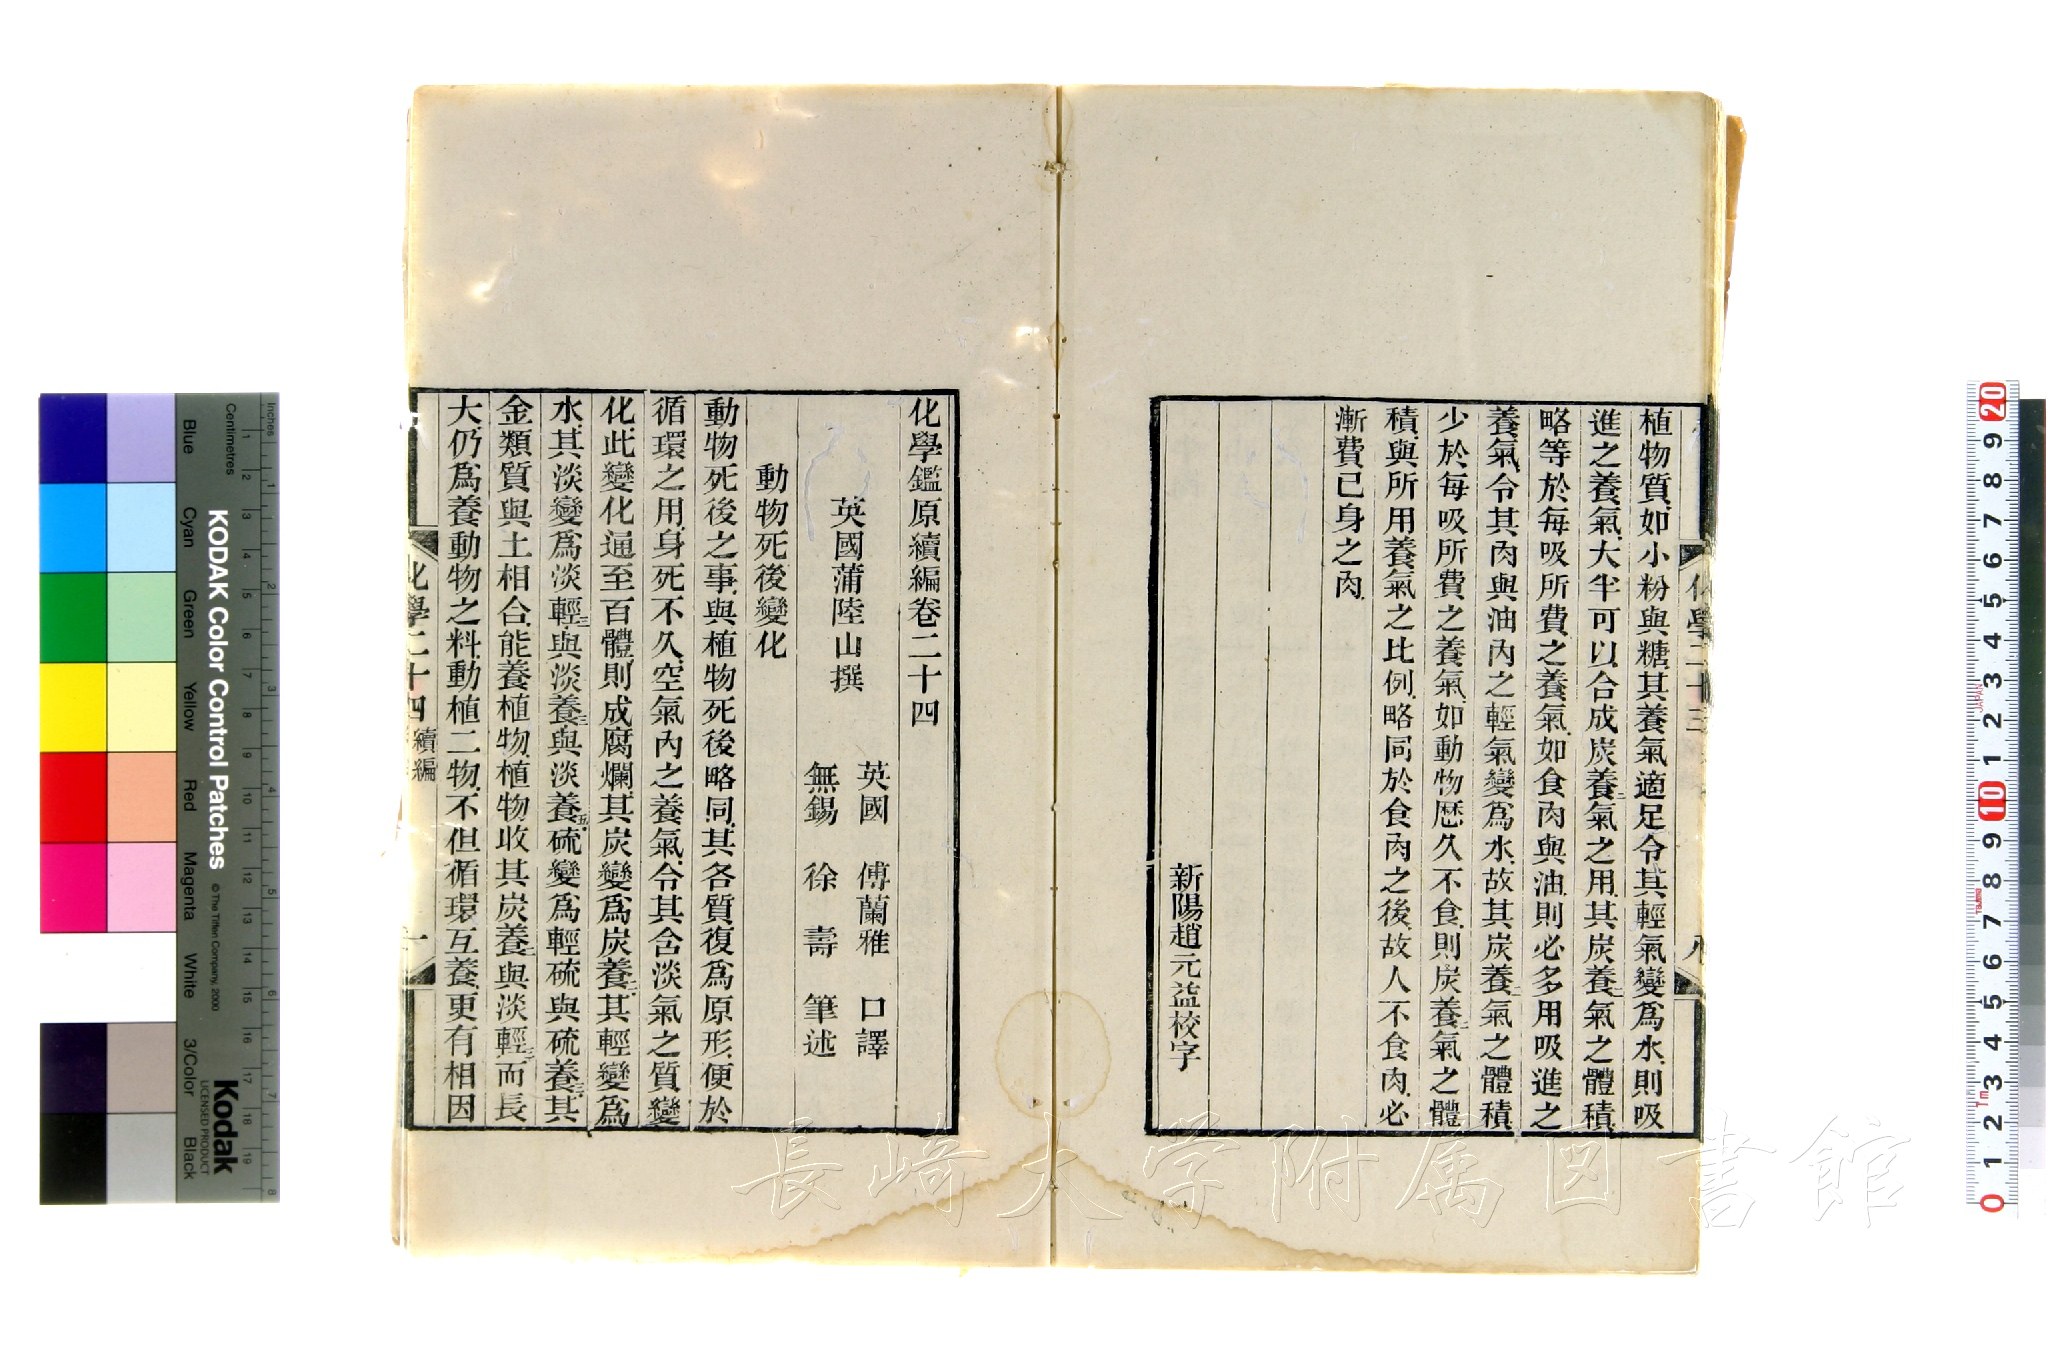 植物質、如小粉與糖、其養氣適足令其輕氣變爲水、則吸
進之養氣、大半可以合成炭養氣之用、其炭養二氣之體積、
略等於每吸所費之養氣、如食肉與油、則必多用吸進之
養氣、令其肉與油內之輕氣變爲水、故其炭養二氣之體積、
少於每吸所費之養氣、如動物歷久不食、則炭養二氣之體
積、與所用養氣之比例、略同於食肉之後、故人不食肉、必
漸費已身之肉、
新陽趙元益校字
化學鑑原續編卷二十四
英國蒲陸山撰
英國 傅蘭雅 口譯
無錫 徐壽 筆述
動物死後變化
動物死後之事、與植物死後略同、其各質復爲原形、便於
循環之用、身死不久、空氣內之養氣、令其含淡氣之質變
化、此變化通至百體、則成腐爛、其炭變爲炭養二、其輕變爲
水、其淡變爲淡輕三、與淡養三、與淡養五、硫變爲輕硫與硫養三、其
金類質與土相合、能養植物、植物收其炭養二與淡輕三、而長
大、仍爲養動物之料、動植二物、不但循環互養、更有相因
化學二十四 續編
一
長崎大学附属図書館
KODAK Color Control Patches
© The Tiffen Company, 2000
Kodak
LICENSED PRODUCT
Inches
Centimetres
Blue
Cyan
Green
Yellow
Red
Magenta
White
3/Color
Black
1 2 3 4 5 6 7 8
1 2 3 4 5 6 7 8 9 10 11 12 13 14 15 16 17 18 19
20 9 8 7 6 5 4 3 2 1 10 9 8 7 6 5 4 3 2 1 0
JAPAN